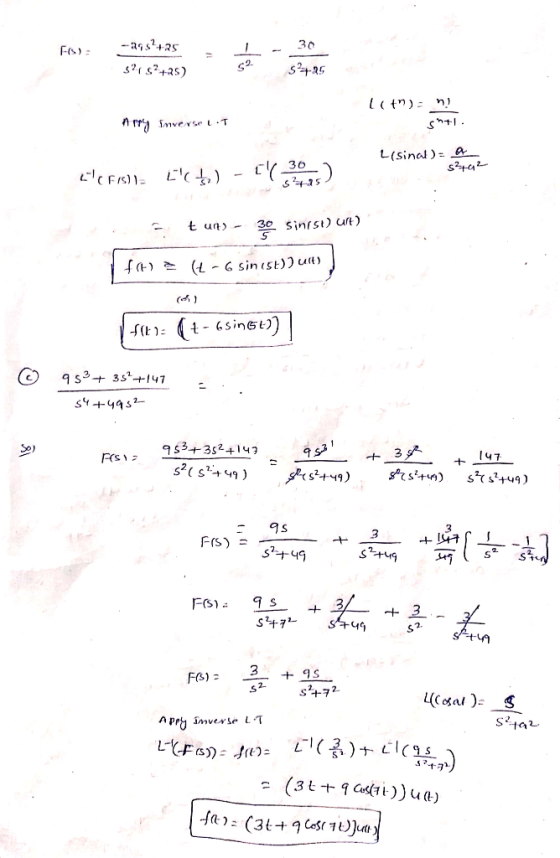 F(s) = (-29s²+25)/(s²(s²+25)) = 1/s² - 30/(s²+25)
L(tⁿ) = n!/sⁿ⁺¹.
Apply Inverse L.T
L(sinat) = a/(s²+a²)
L⁻¹(F(s)) = L⁻¹(1/s²) - L⁻¹(30/(s²+25))
= t u(t) - 30/5 sin(5t) u(t)
f(t) = (t - 6 sin(5t)) u(t)
(or)
f(t) = (t - 6 sin(5t))
(c) (9s³+3s²+147)/(s⁴+49s²) =
Sol F(s) = (9s³+3s²+147)/(s²(s²+49)) = 9s³/(s²(s²+49)) + 3s²/(s²(s²+49)) + 147/(s²(s²+49))
F(s) = 9s/(s²+49) + 3/(s²+49) + 147/49 3 [1/s² - 1/(s²+49)]
F(s) = 9s/(s²+7²) + 3/(s²+49) + 3/s² - 3/(s²+49)
F(s) = 3/s² + 9s/(s²+7²)
L(cosat) = s/(s²+a²)
Apply Inverse L.T
L⁻¹(F(s)) = f(t) = L⁻¹(3/s²) + L⁻¹(9s/(s²+7²))
= (3t + 9 cos(7t)) u(t)
f(t) = (3t + 9 cos(7t)] u(t)